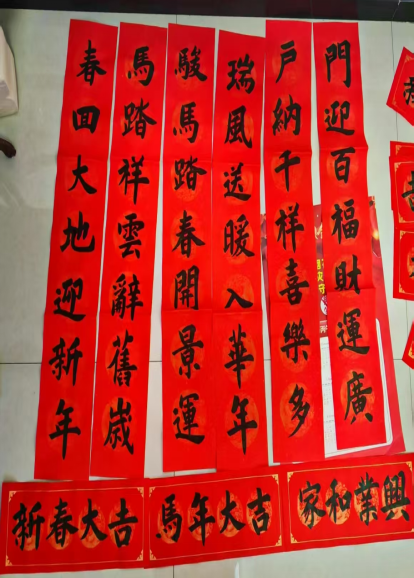 門迎百福財運廣
户納千祥喜樂多
瑞風送暖入華年
駿馬踏春開景運
馬踏祥雲辭舊歲
春回大地迎新年
新春大吉
馬年大吉
家和業興